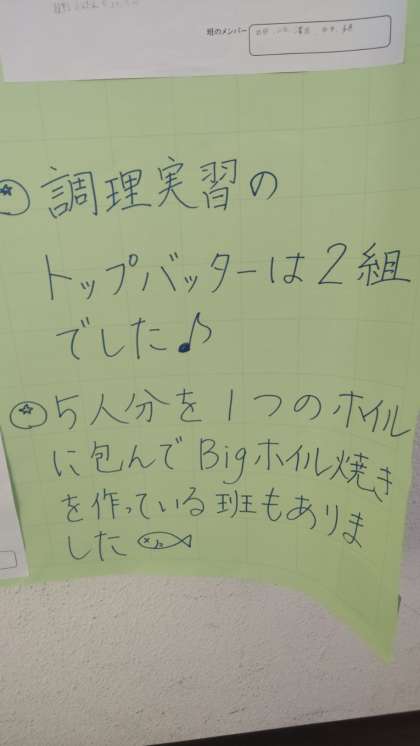 班のメンバー
調理実習の
トップバッターは2組
でした♪
5人分を1つのホイル
に包んでBigホイル焼き
を作っている班もありま
した